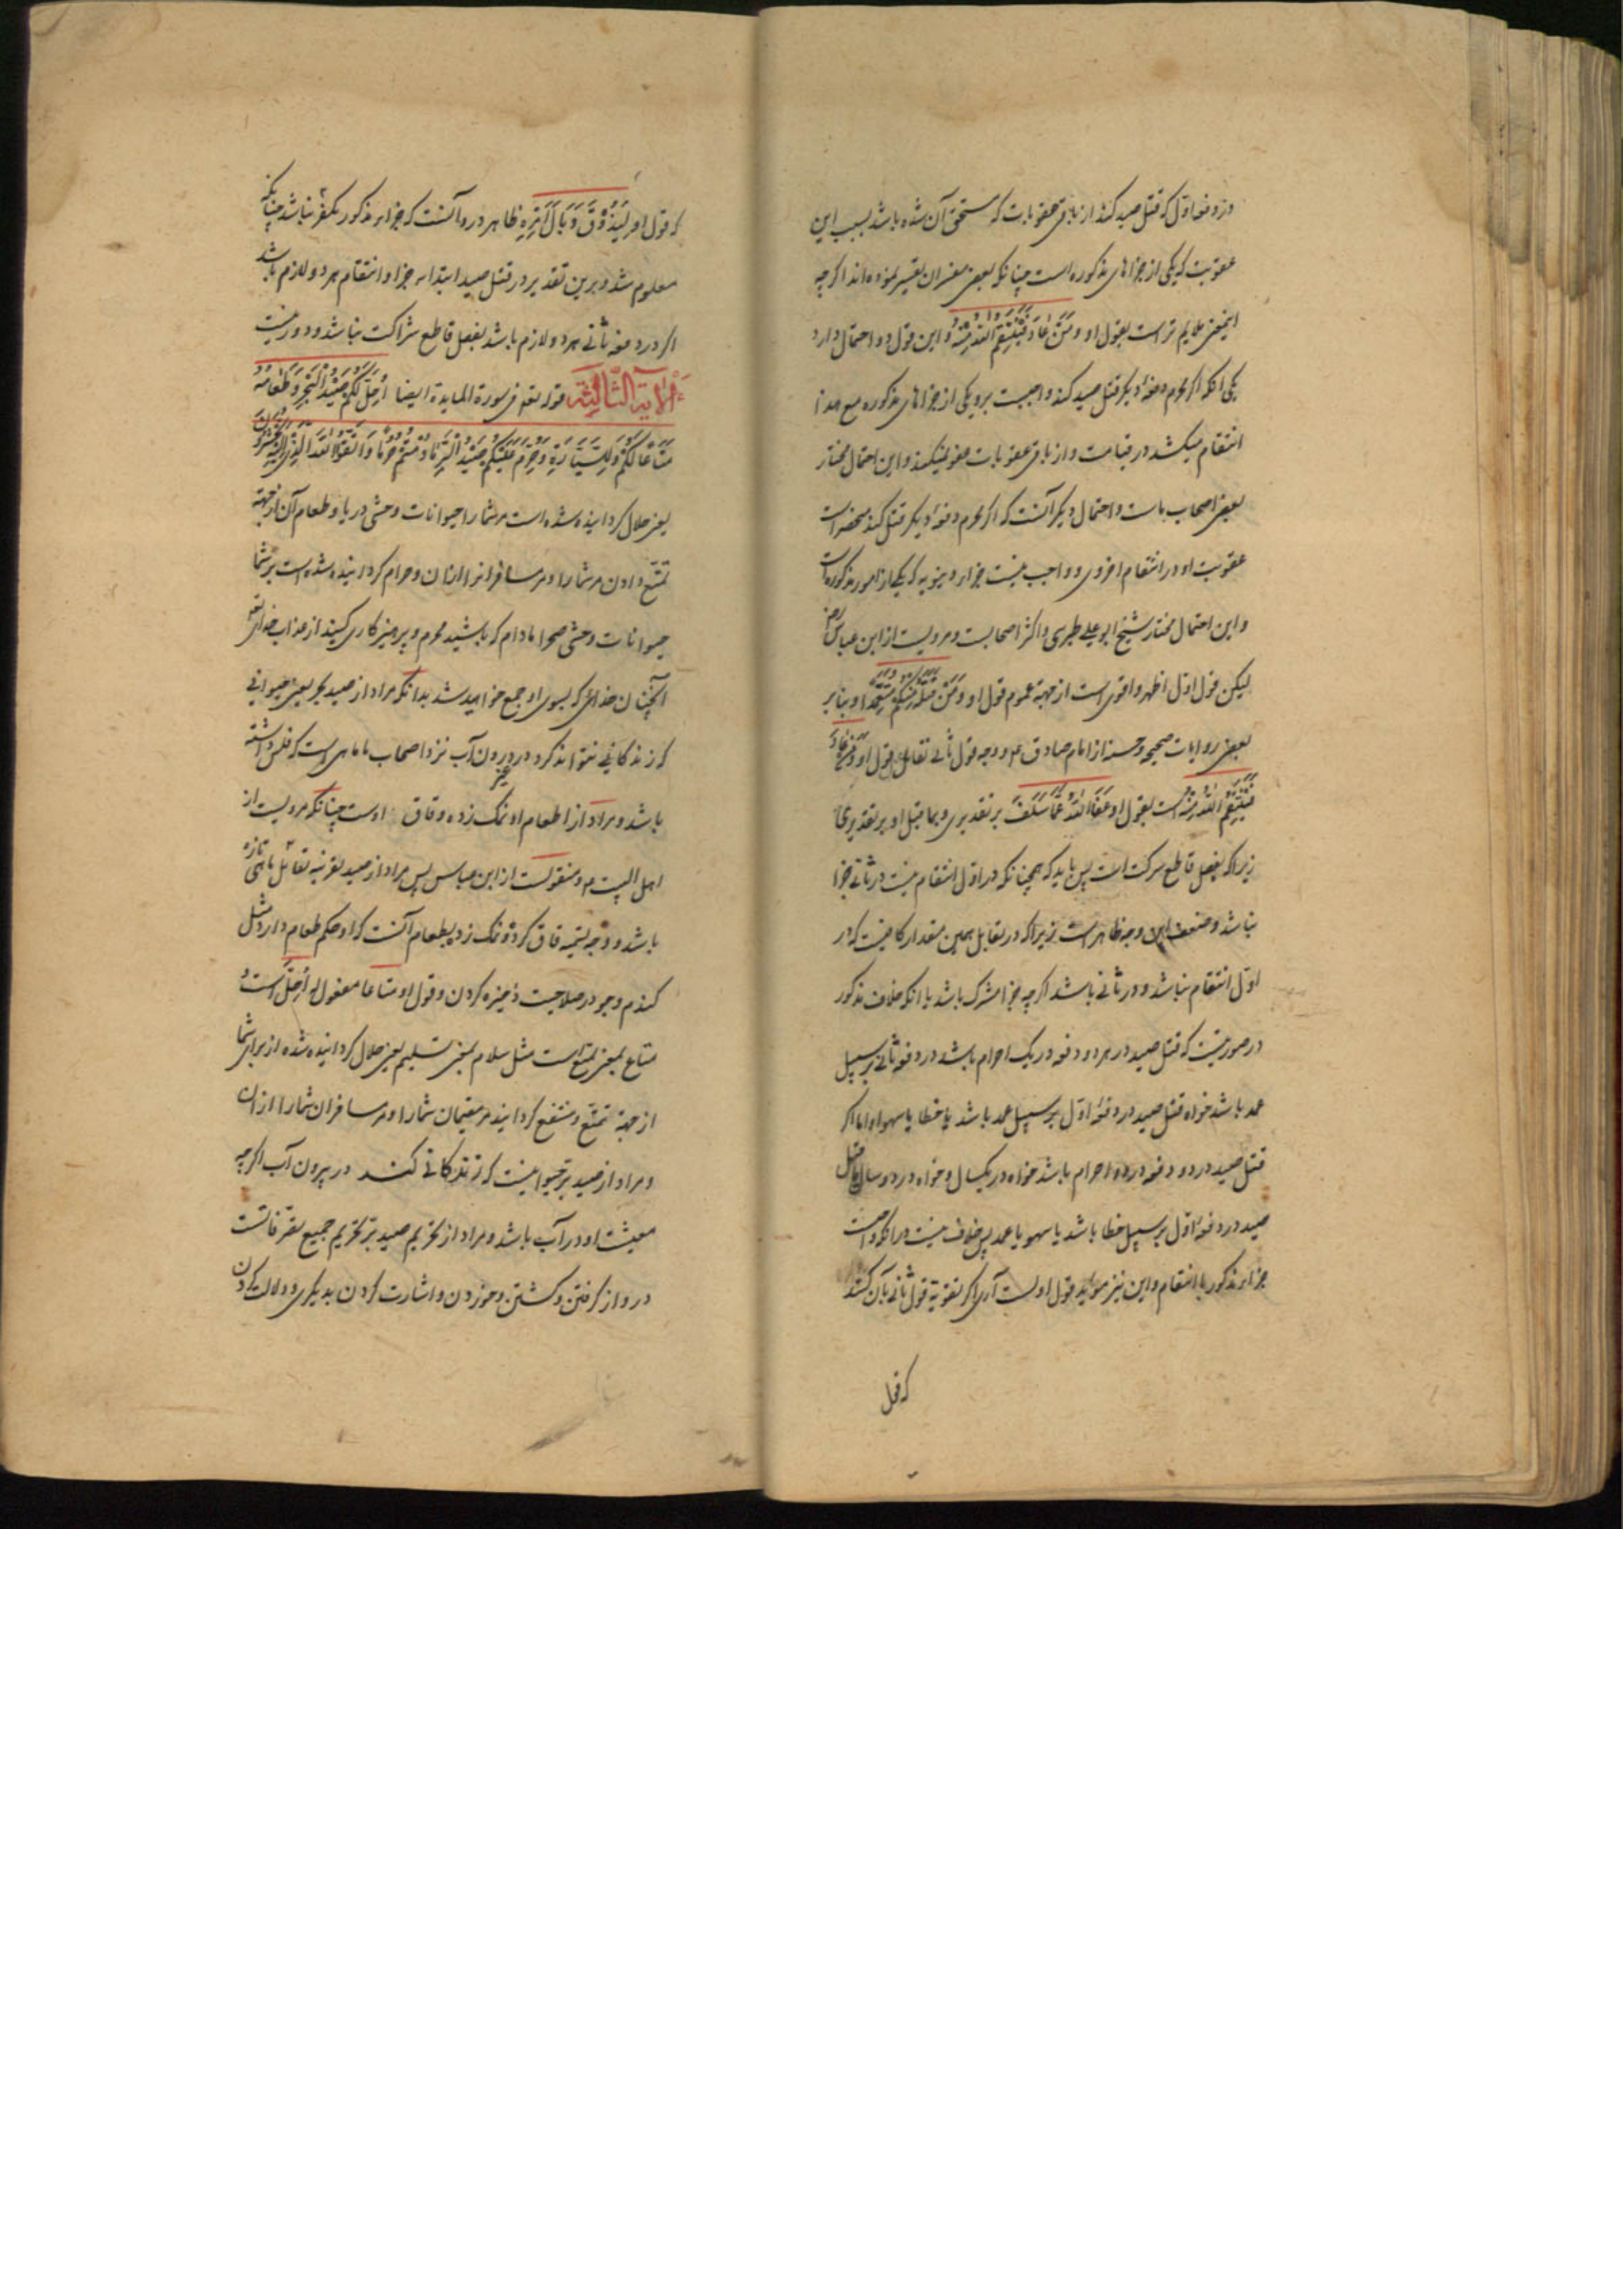 در دفعه اول که قتل صید کند از باقی عقوبات که مستحق آن شده باشد بسبب این
عقوبت که یکی از جزاهای مذکوره است چنانکه بعض مفسران تفسیر نموده‌اند اگرچه
اینمعنی ملایم تر است بقول او وَمَنْ عَادَ فَيَنْتَقِمُ اللّٰهُ مِنْهُ و این قول دو احتمال دارد
یکی انکه اگر محرم دفعهٔ دیگر قتل صید کند واجبست برو یکی از جزاهای مذکوره مع هذا
انتقام میکشد در قیامت و از باقی عقوبات عفو نمیکند و این احتمال مختار
بعض اصحاب ماست و احتمال دیگر آنست که اگر محرم دفعهٔ دیگر قتل کند منحصر است
عقوبت او در انتقام اخروی و واجب نیست جزاء دنیویه که یکی از امور مذکوره است
و این احتمال مختار شیخ ابو علی طبرسی و اکثر اصحابست و مرویست از ابن عباس رض
لیکن قول اول اظهر و اقوی است از جهة عموم قول او وَمَنْ قَتَلَهُ مِنْكُمْ مُتَعَمِّدًا و بنابر
بعض روایات صحیحه و حسنه از امام صادق ع و وجه قول ثانی تقابل قول او وَمَنْ عَادَ
فَيَنْتَقِمُ اللّٰهُ مِنْهُ است بقول او عَفَا اللّٰهُ عَمَّا سَلَفَ بر تقدیری و بما قبل او بر تقدیری
زیرا که تفصیل قاطع شرکت است پس باید که همچنانکه در اول انتقام نیست در ثانی جزا
نباشد و ضعف این وجه ظاهر است زیرا که در تقابل همین مقدار کافیست که در
اول انتقام نباشد و در ثانی باشد اگرچه جزا مشترک باشد با انکه خلاف مذکور
در صورتیست که قتل صید در هر دو دفعه در یک احرام باشد در دفعه ثانی بر سبیل
عمد باشد خواه قتل صید در دفعهٔ اول بر سبیل عمد باشد یا خطا یا سهو او اما اگر
قتل صید در دو دفعه در دو احرام باشد خواه در یکسال و خواه در دو سال یا قتل
صید در دفعهٔ اول بر سبیل خطا باشد یا سهو یا عمد پس خلاف نیست در انکه واجبست
جزاء مذکور با انتقام و این نیز مؤید قول اولست آری اگر تقویة قول ثانی بآن کنند
که قول
که قول او لِيَذُوقَ وَبَالَ أَمْرِهِ ظاهر در و آنست که جزاء مذکور مکفر نباشد چنانکه
معلوم شد و برین تقدیر در قتل صید ابتداء جزا و انتقام هر دو لازم باشد
اگر در دفعه ثانی هر دو لازم باشد تفصیل قاطع شراکت نباشد دور نیست
اَلْآيَةُ الثَّالِثَةُ قوله تعه فی سورة المایدة ایضا أُحِلَّ لَكُمْ صَيْدُ الْبَحْرِ وَطَعَامُهُ
مَتَاعًا لَكُمْ وَلِلسَّيَّارَةِ وَحُرِّمَ عَلَيْكُمْ صَيْدُ الْبَرِّ مَا دُمْتُمْ حُرُمًا وَاتَّقُوا اللّٰهَ الَّذِي إِلَيْهِ تُحْشَرُونَ
یعنی حلال گردانیده شده است مر شما را حیوانات وحشی دریا و طعام آن از جهة
تمتع دادن مر شما را و مر مسافرانرا از ان و حرام گردانیده شده است بر شما
حیوانات وحشی صحرا مادام که باشید محرم و پرهیزکاری کنید از عذاب خدای تعه
آنچنان خدای که بسوی او جمع خواهید شد بدانکه مراد از صید بحر یعنی حیوانی
که زندکانی نتواند کرد در بیرون آب نزد اصحاب ما ماهی است که فلس داشته
باشد و مراد از طعام او نمک زده و قاق اوست چنانکه مرویست از
اهل البیت م و منقولست از ابن عباس پس مراد از صید بقرینه تقابل ماهی تازه
باشد و وجه تسمیه قاق کرده و نمک زد بطعام آنست که او حکم طعام دارد مثل
کندم و جو در صلاحیت ذخیره کردن و قول او متاعا مفعول له أُحِلَّ است
متاع بمعنی تمتع است مثل سلام بمعنی تسلیم یعنی حلال گردانیده شده از برای شما
از جهة تمتع و منتفع گردانیدن مقیمان شما را و مسافران شما را از ان
و مراد از صید بر حیوانیست که زندکانی کند در بیرون آب اگرچه
معیشت او در آب باشد و مراد از تحریم صید بر تحریم جمیع تصرفاتست
در و از گرفتن و کشتن و خوردن و اشارت کردن بدیکری و دلالت کردن